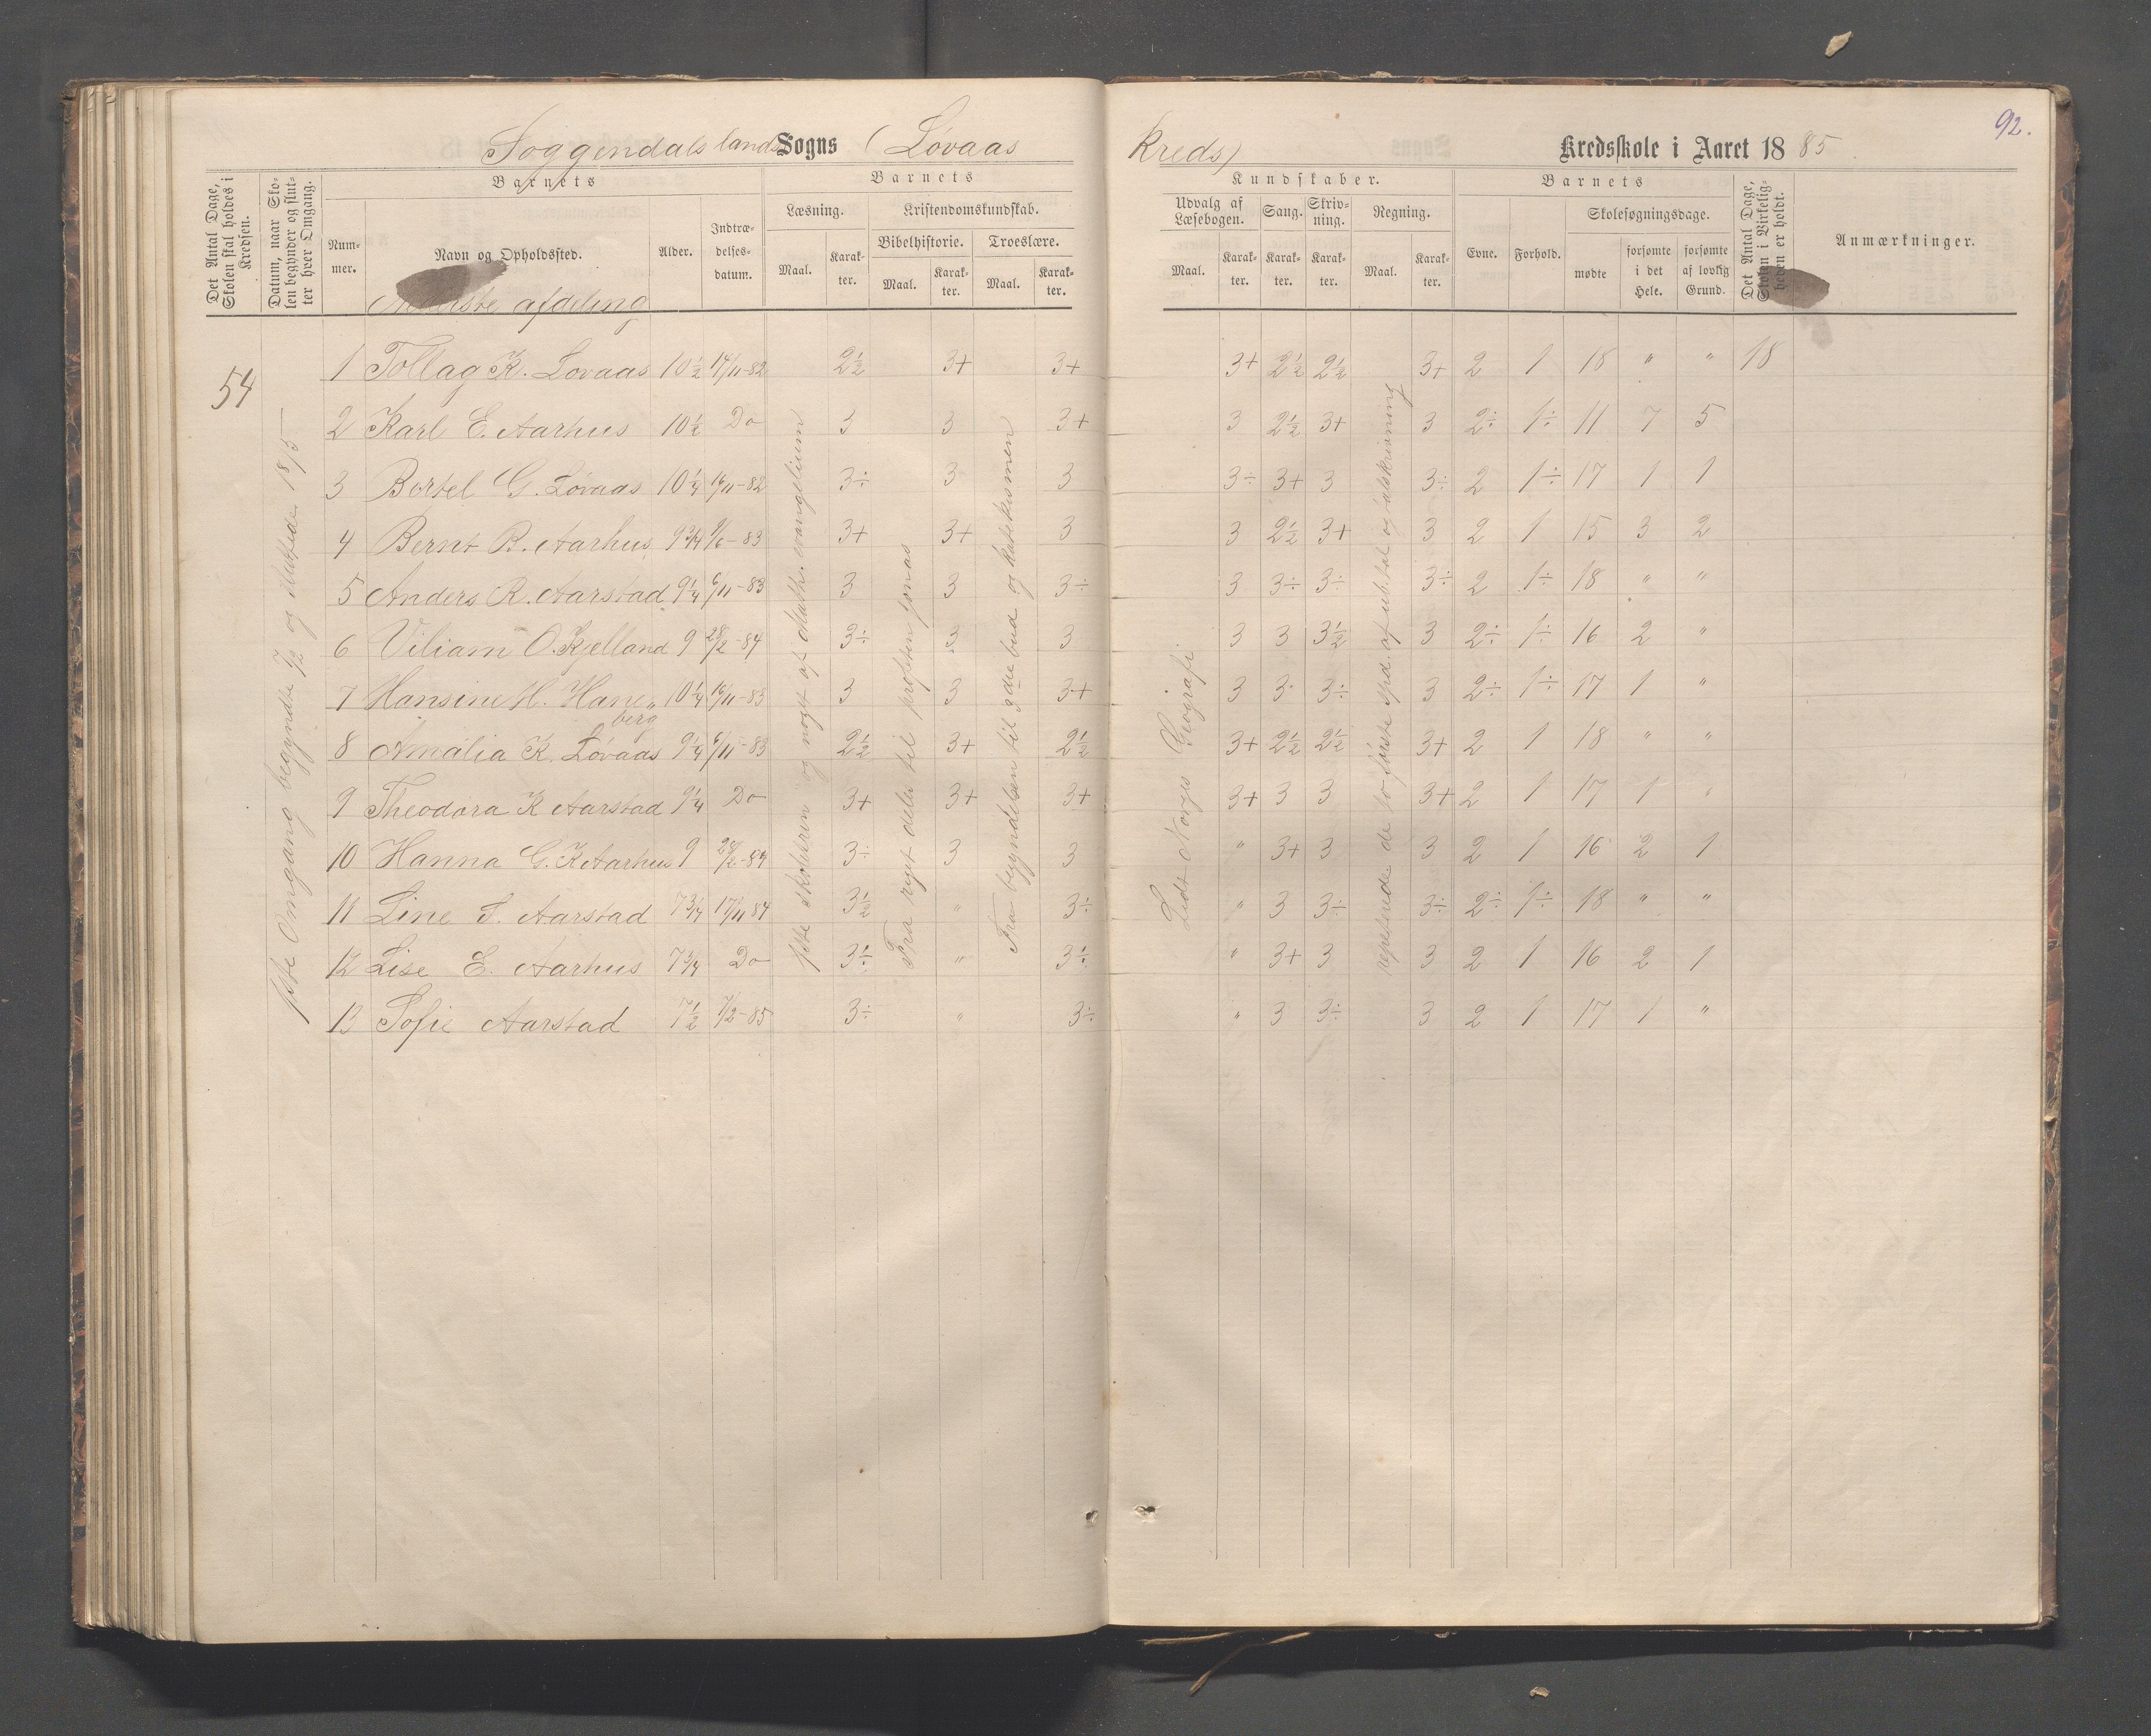 92.
Soggendals lands Sogns (Løvaas kreds) Kredsskole i Aaret 1885
Det Antal Dage, Skolen skal holdes i Kredsen.
Datum, naar Skolen begynder og slutter hver Omgang.
Barnets
Barnets
Kundskaber.
Barnets
Det Antal Dage, Skolen i Virkeligheden er holdt.
Anmærkninger.
Nummer.
Navn og Opholdssted.
Alder.
Indtrædelsesdatum.
Læsning.
Kristendomskundskab.
Bibelhistorie.
Troeslære.
Udvalg af Læsebogen.
Sang.
Skrivning.
Regning.
Evne.
Forhold.
Skolesøgningsdage.
Maal. Karakter. Maal. Karakter. Maal. Karakter.
Maal. Karakter. Karakter. Karakter. Maal. Karakter.
mødte
forsømte i det Hele.
forsømte af lovlig Grund.
afdeling
54
1ste Omgang begyndte 7/2 og sluttede 18/5
1 Tollag K. Lovaas 10½ 14/11-82 2½ 3+ 3+ 3+ 2½ 2½ 3+ 2 1 18 " " 18
2 Karl E. Aarhus 10½ Do 3 3 3+ 3 2½ 3+ 3 2÷ 1÷ 11 7 5
3 Bertel G. Løvaas 10¼ 16/11-82 3÷ 3 3 3÷ 3+ 3 3÷ 2 1÷ 17 1 1
4 Bernt B. Aarhus 9¾ 9/6-83 3+ 3+ 3 3 2½ 3+ 3 2 1 15 3 2
5 Anders R. Aarstad 9¼ 6/11-83 3 3 3÷ 3 3÷ 3÷ 3÷ 2 1÷ 18 " "
6 Viliam O. Kjelland 9 28/2-84 3÷ 3 3 3 3 3½ 3 2÷ 1÷ 16 2 "
7 Hansine M. Haneberg 10¼ 16/11-83 3 3 3+ 3 3 3÷ 3 2÷ 1÷ 17 1 "
8 Amalia K. Løvaas 9¼ 6/11-83 2½ 3+ 2½ 3+ 2½ 2½ 3+ 2 1 18 " "
9 Theodora K Aarstad 9¼ Do 3+ 3+ 3+ 3+ 3 3 3+ 2 1 17 1 "
10 Hanna G. K Aarhus 9 28/2-84 3÷ 3 3 " 3+ 3 3 2 1 16 2 1
11 Line T. Aarstad 7¾ 17/11 84 3½ " 3÷ " 3 3÷ 3÷ 2÷ 1÷ 18 " "
12 Lise E. Aarhus 7¾ Do 3÷ " 3÷ " 3+ 3 3 2 1 16 2 1
13 Sofie Aarstad 7½ 7/2-85 3÷ " 3÷ " 3 3÷ 3 2 1 17 1 "
og nogt af Math. evangelium
Fra rigt. delet til profeten Jonas
Fra begyndelsen til 3die bud og katekismen
Lidt Norges Geografi
repeterede de to første spd. af ub. tal og talskrivning